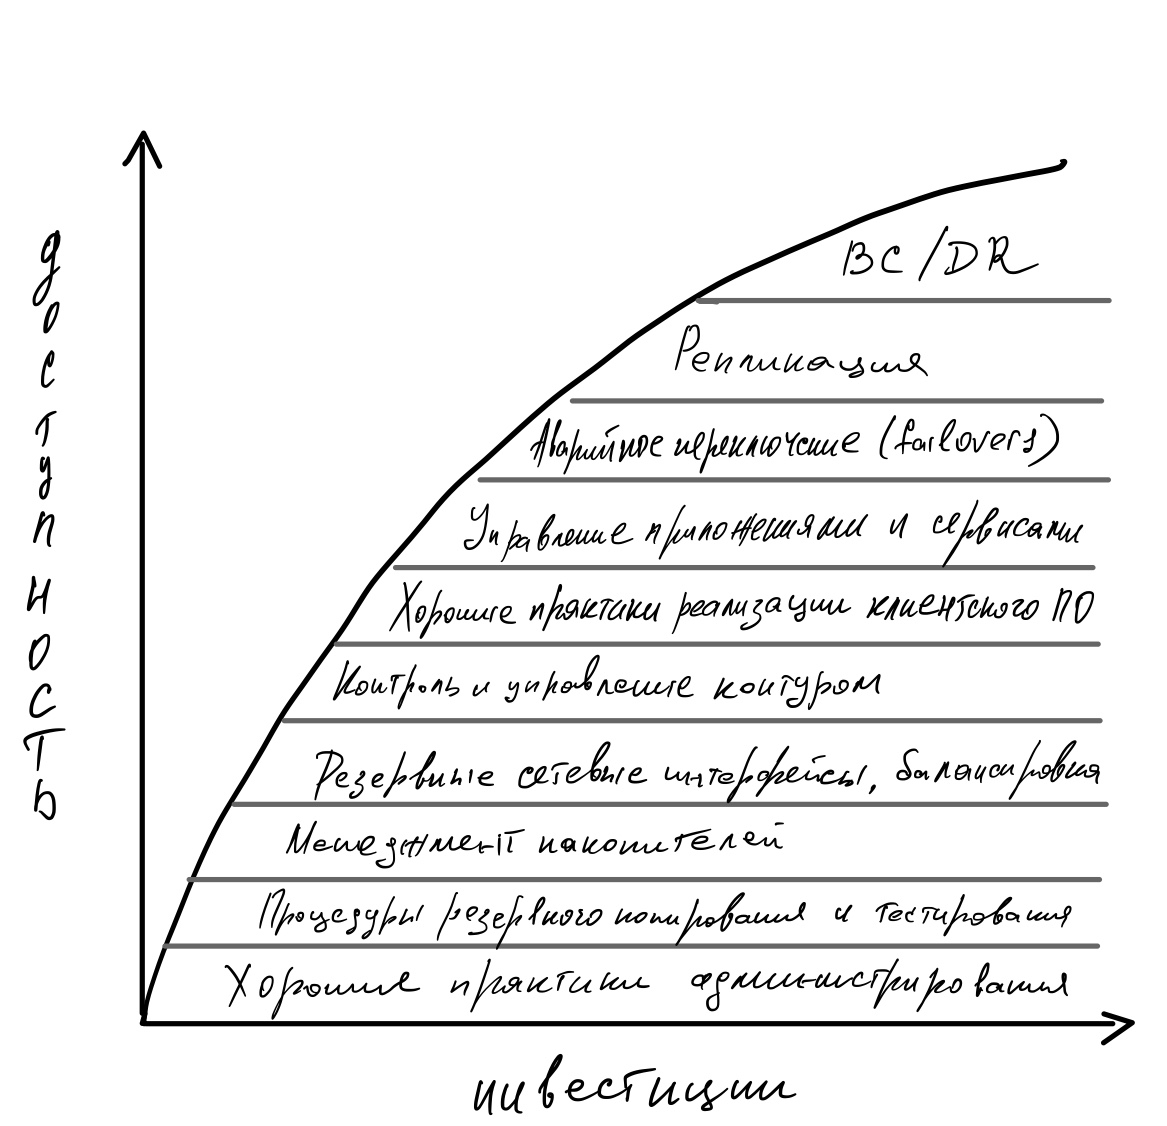 доступность
BC/DR
Репликация
Аварийное переключение (failovers)
Управление приложениями и сервисами
Хорошие практики реализации клиентского ПО
Контроль и управление контуром
Резервные сетевые интерфейсы, балансировка
Менеджмент накопителей
Процедуры резервного копирования и тестирования
Хорошие практики администрирования
инвестиции